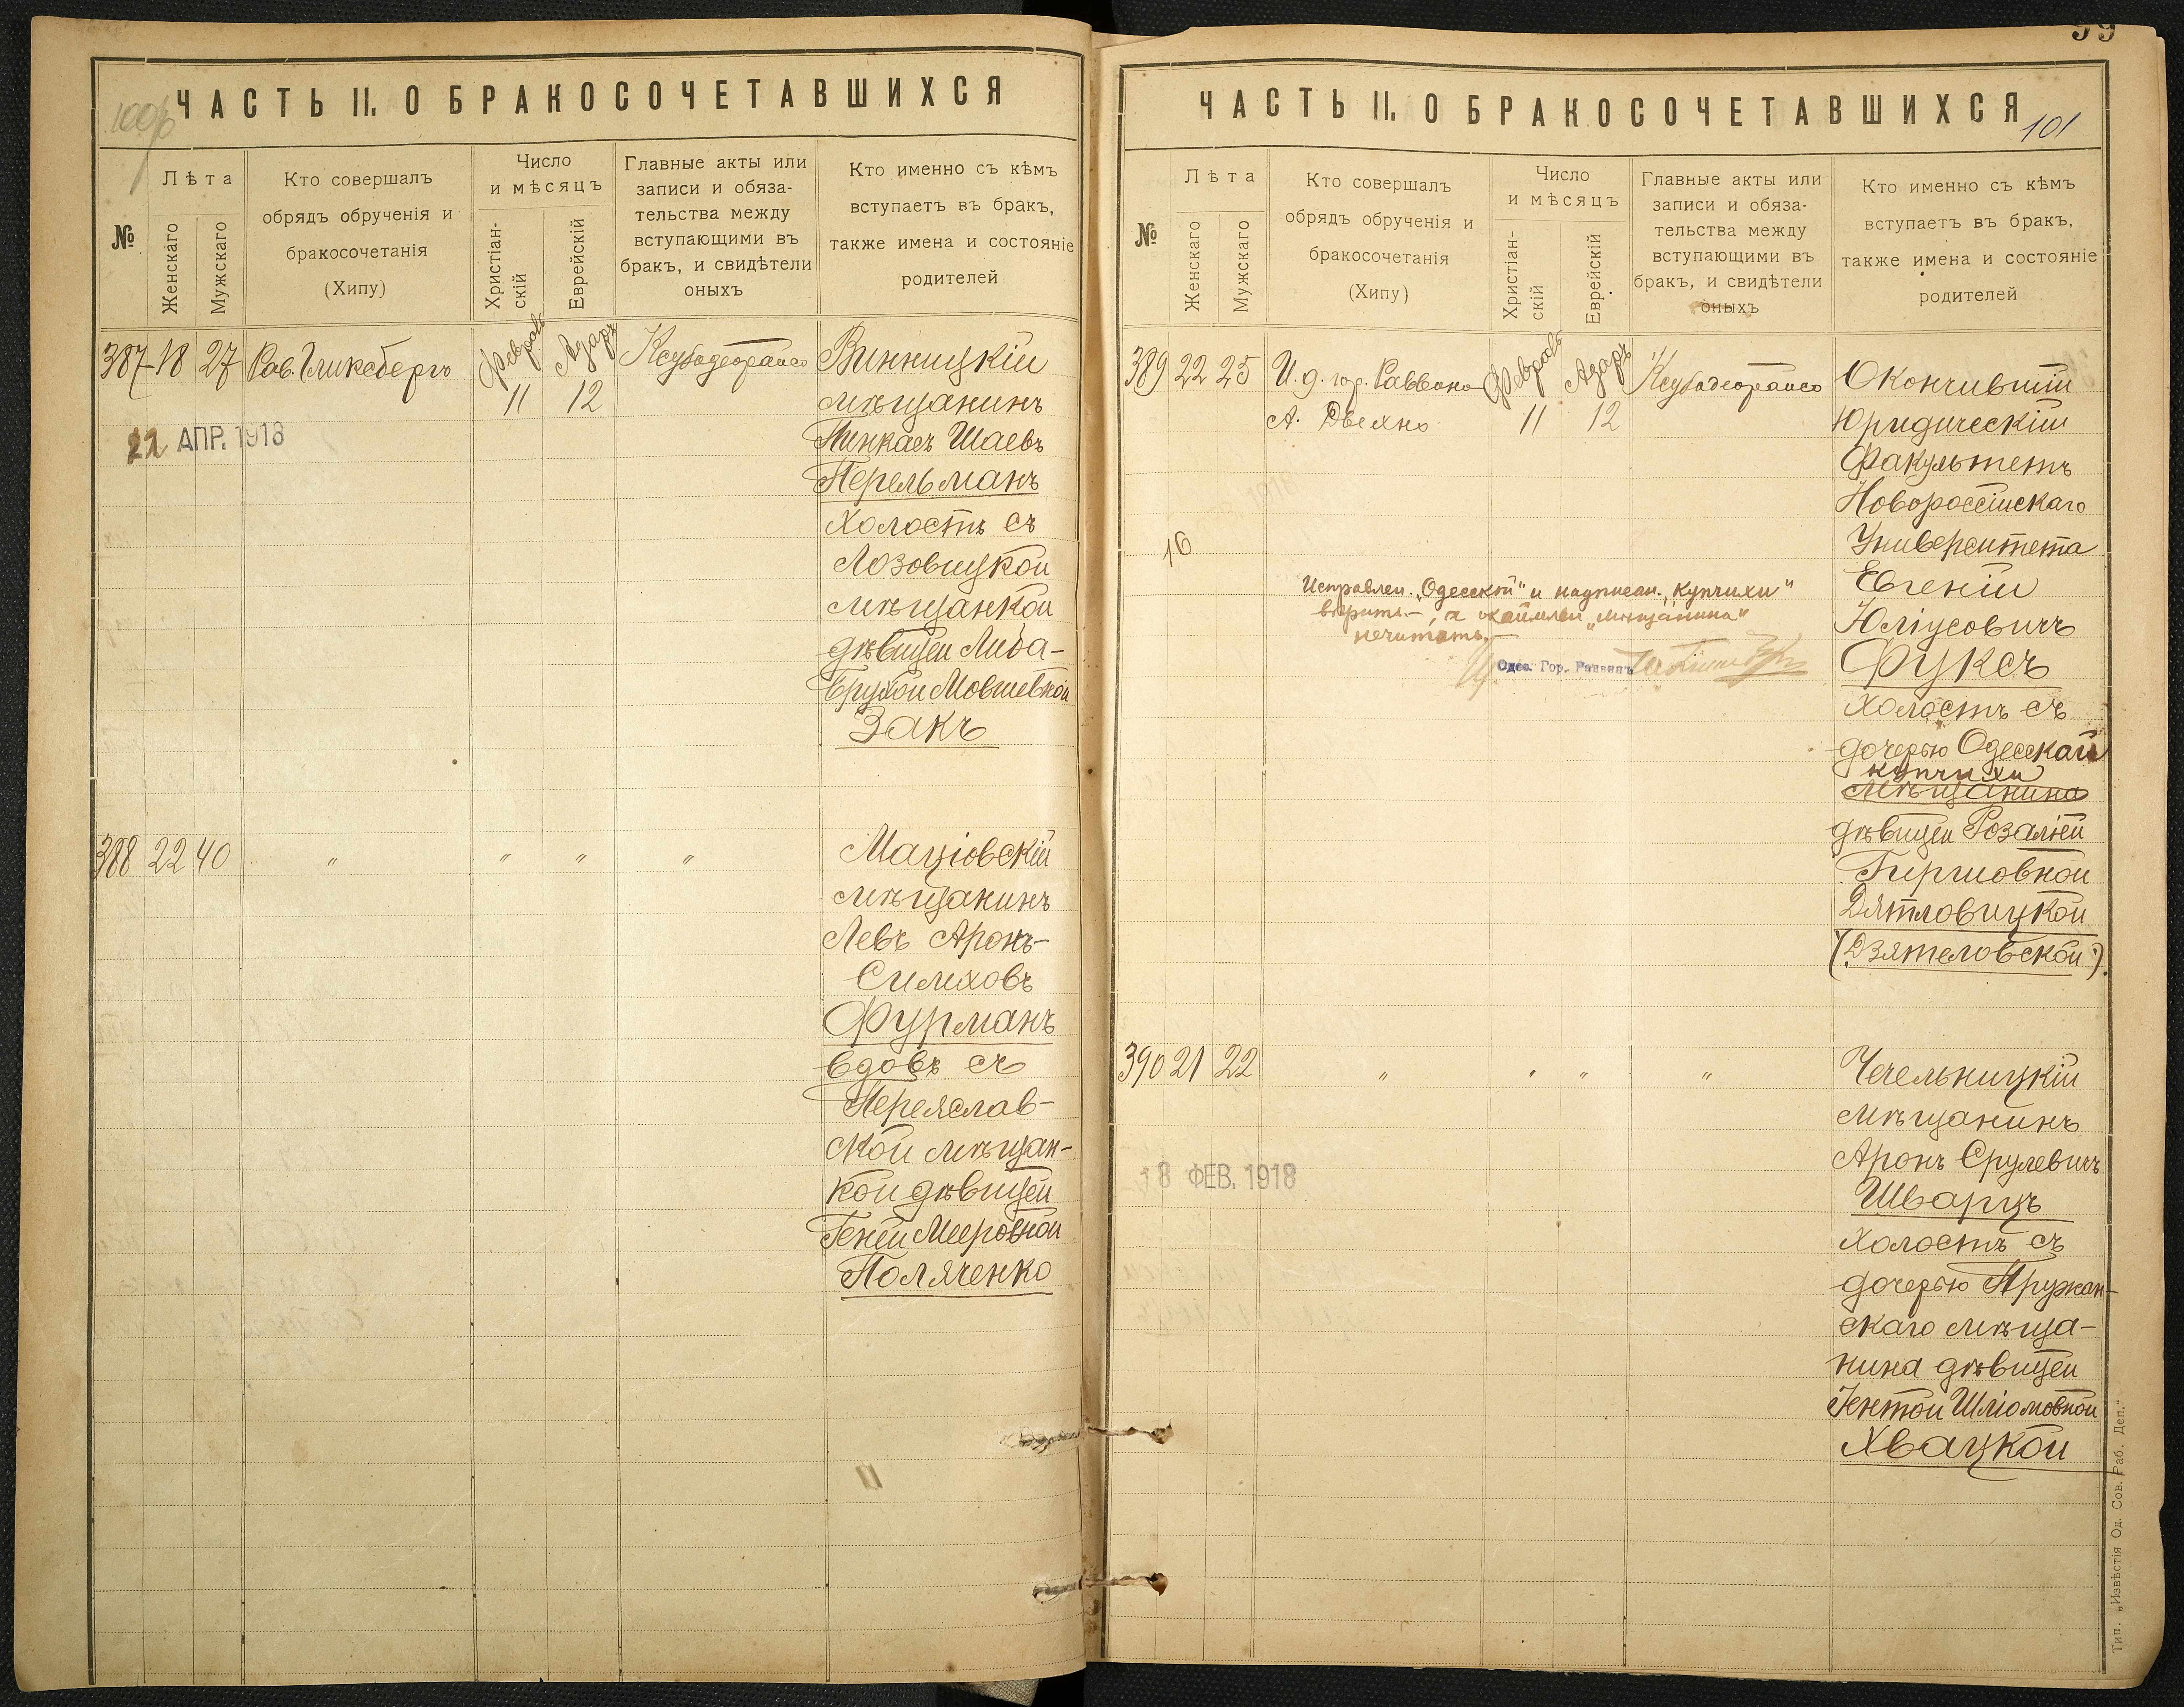 ЧАСТЬ II. О БРАКОСОЧЕТАВШИХСЯ
№
Лѣта
Женскаго
Мужскаго
Кто совершалъ
обрядъ обрученія и
бракосочетанія
(Хипу)
Число
и мѣсяцъ
Христіан-
скій
Еврейскій
Главные акты или
записи и обяза-
тельства между
вступающими въ
бракъ, и свидѣтели
оныхъ
Кто именно съ кѣмъ
вступаетъ въ бракъ,
также имена и состояніе
родителей
387 18 27 Рав. Гликсбергъ Февраль 11 Адаръ 12
Винницкій
мѣщанинъ
Пинкасъ Шаевъ
Перельманъ
холостъ съ
Лозовицкой
мѣщанкой
дѣвицей Либа-
Брухой Мовшевной
Закъ
22 АПР. 1918
388 22 40 " " " "
Маціовскій
мѣщанинъ
Левъ Аронъ-
Симховъ
Фурманъ
вдовъ съ
Переяслав-
ской мѣщан-
кой дѣвицей
Геней Мееровной
Поляченко
99
ЧАСТЬ II. О БРАКОСОЧЕТАВШИХСЯ
101
№
Лѣта
Женскаго
Мужскаго
Кто совершалъ
обрядъ обрученія и
бракосочетанія
(Хипу)
Число
и мѣсяцъ
Христіан-
скій
Еврейскій
Главные акты или
записи и обяза-
тельства между
вступающими въ
бракъ, и свидѣтели
оныхъ
Кто именно съ кѣмъ
вступаетъ въ бракъ,
также имена и состояніе
родителей
389 22 25 И. д. гор. Раввина Февраль Адаръ
А. 11 12
Окончившій
Юридическій
Факультетъ
Новороссійскаго
Университета
Евгеній
Юліусовичъ
Фуксъ
холостъ съ
дочерью Одесской
купчихи
мѣщанина
дѣвицей Розаліей
Гиршовной
Дятловицкой
(Дзятеловской).
16
Исправлен. „Одесской" и надписан. „Купчихи"
вѣрить, а „мѣщанина"
нечитать.
Одес. Гор. Раввинъ
390 21 22 " " " "
Чечельницкій
мѣщанинъ
Аронъ Срулевичъ
Шварцъ
холостъ съ
дочерью Пружан-
скаго мѣща-
нина дѣвицей
Іентой Шліомовной
Хвацкой
18 ФЕВ. 1918
Тип. „Извѣстія Од. Сов. Раб. Деп."